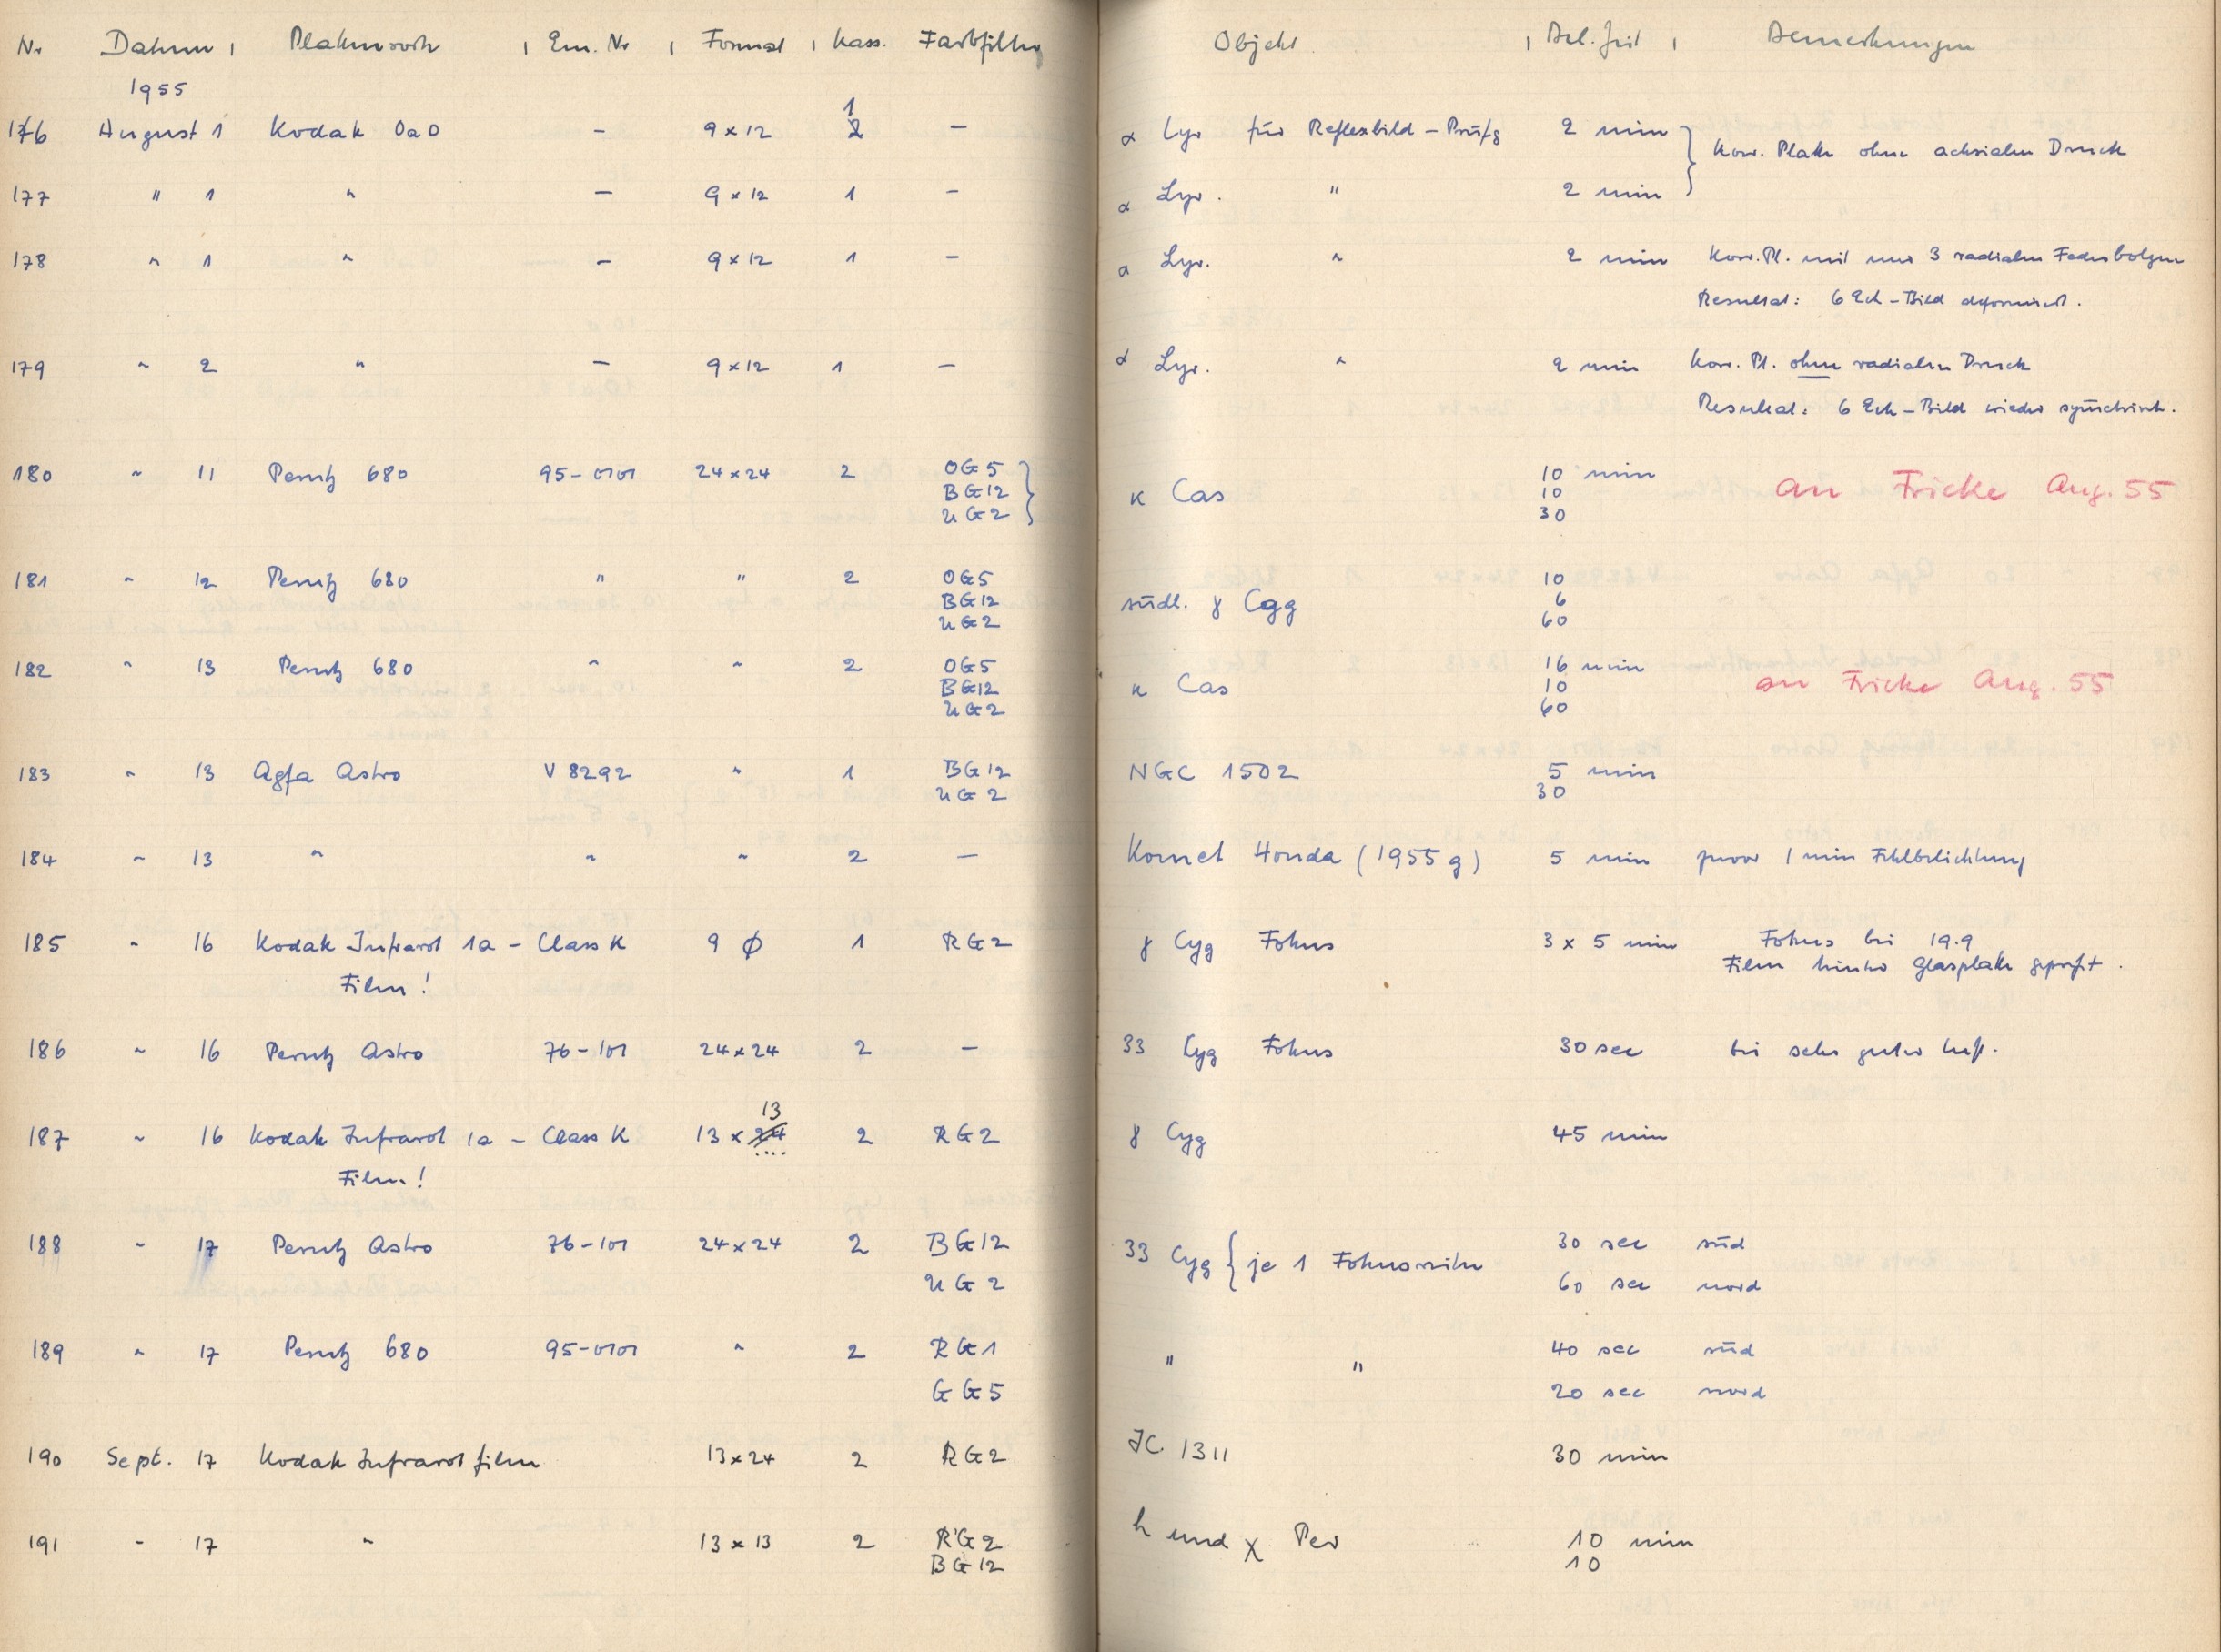 Nr Datum Plattensorte Em. Nr Format Kass. Farbfilter Objekt Bel. Zeit Bemerkungen
1955
176 August 1 Kodak 0a0 – 9 x 12 1 – α Lyr für Reflexbild – Prüfg 2 min Korr. Platte ohne achsialen Druck
177 " 1 " – 9 x 12 1 – α Lyr. " 2 min
178 " 1 " – 9 x 12 1 – α Lyr. " 2 min Korr. Pl. mit nur 3 radialen Federbolzen
Resultat: 6 Eck – Bild deformiert.
179 " 2 " – 9 x 12 1 – α Lyr. " 2 min Korr. Pl. ohne radialen Druck
Resultat: 6 Eck – Bild wieder symmetrisch.
180 " 11 Perutz 680 95 – 0101 24 x 24 2 OG5 κ Cas 10 min an Fricke Aug. 55
BG12 10
UG2 30
181 " 12 Perutz 680 " " 2 OG5 südl. γ Cyg 10
BG12 6
UG2 60
182 " 13 Perutz 680 " " 2 OG5 κ Cas 16 min an Fricke Aug. 55
BG12 10
UG2 60
183 " 13 Agfa Astro V 8292 " 1 BG12 NGC 1502 5 min
UG2 30
184 " 13 " " " 2 – Komet Honda (1955 g) 5 min zuvor 1 min Fehlbelichtung
185 " 16 Kodak Infrarot 1a – Class K 9 ϕ 1 RG2 γ Cyg Fokus 3 x 5 min Fokus bei 19.9
Film! Film hinter Glasplatte gepresst.
186 " 16 Perutz Astro 76 – 101 24 x 24 2 – 33 Cyg Fokus 30 sec bei sehr guter Luft.
13
187 " 16 Kodak Infrarot 1a – Class K 13 x 24 2 RG2 γ Cyg 45 min
Film!
188 " 17 Perutz Astro 76 – 101 24 x 24 2 BG12 33 Cyg { je 1 Fokusreihe 30 sec süd
UG2 60 sec nord
189 " 17 Perutz 680 95 – 0101 " 2 RG1 " " 40 sec süd
GG5 20 sec nord
190 Sept. 17 Kodak Infrarot film 13 x 24 2 RG2 IC 1311 30 min
191 " 17 " 13 x 13 2 RG2 h und χ Per 10 min
BG12 10